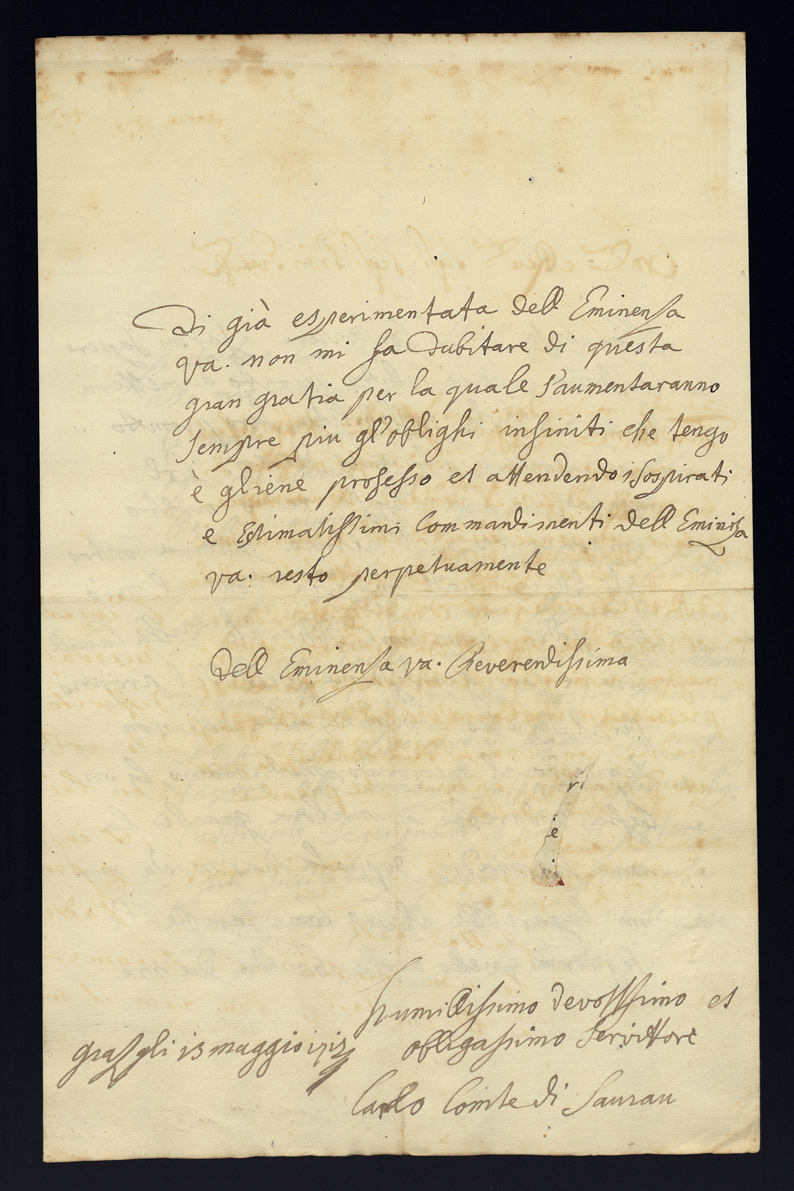 Di già esperimentata dell Eminenza
va. non mi fa dubitare di questa
gran gratia per la quale s'aumentaranno
sempre piu gl'oblighi infiniti che tengo
è gliene professo et attendendo i sospirati
e stimatissimi Commandimenti dell Eminenza
va. resto perpetuamente
Dell Eminenza va. Reverendissima
humillissimo devotissimo et
obligassimo Servittore
graz gli 13 maggio
Carlo Comte di Saurau